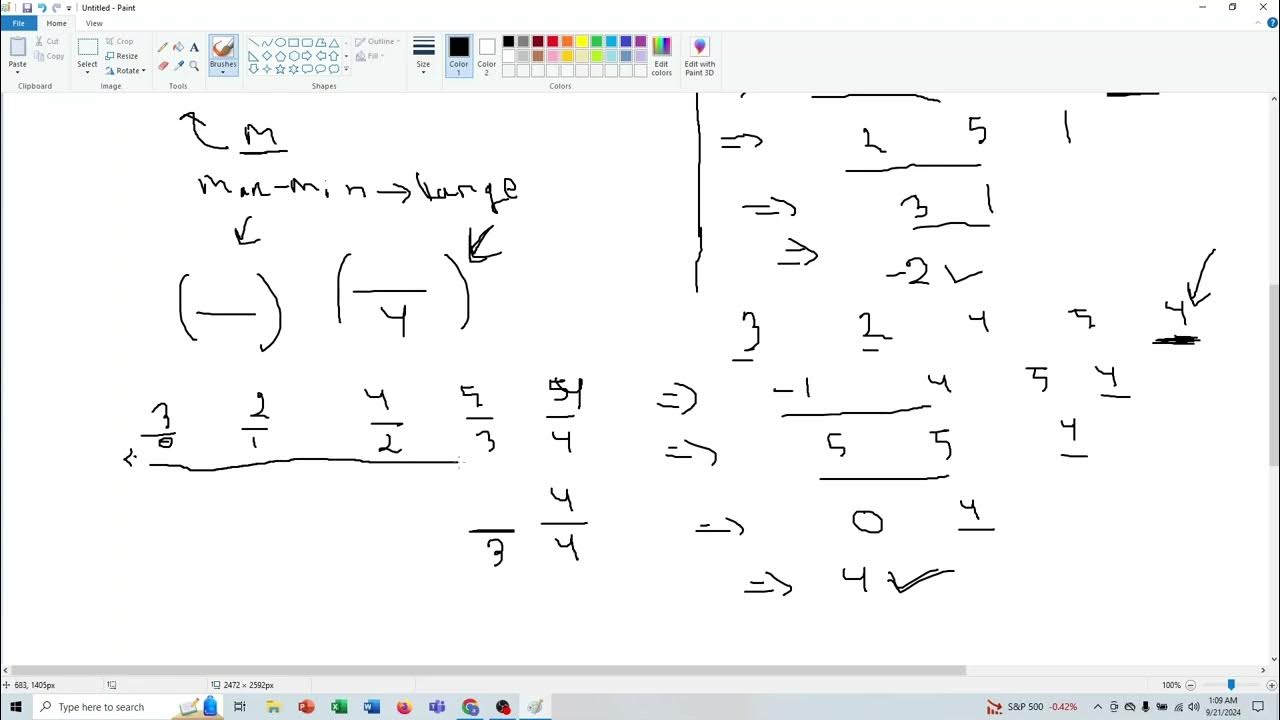 Untitled - Paint
File Home View
Paste Cut Copy Clipboard
Select Crop Resize Rotate Image
Tools
Brushes
Outline Fill Shapes
Size
Color 1 Color 2 Edit colors Edit with Paint 3D Colors
M
max-min → large
4
3 2 4 5
0 1 2 3 4
4
3 4
=> 2 5 1
=> 3 1
=> -2 ✓
3 2 4 5 4
=> -1 4 5 4
=> 5 5 4
=> 0 4
=> 4 ✓
683, 1405px 2472 × 2592px 100%
Type here to search S&P 500 -0.42% 1:09 AM
9/21/2024